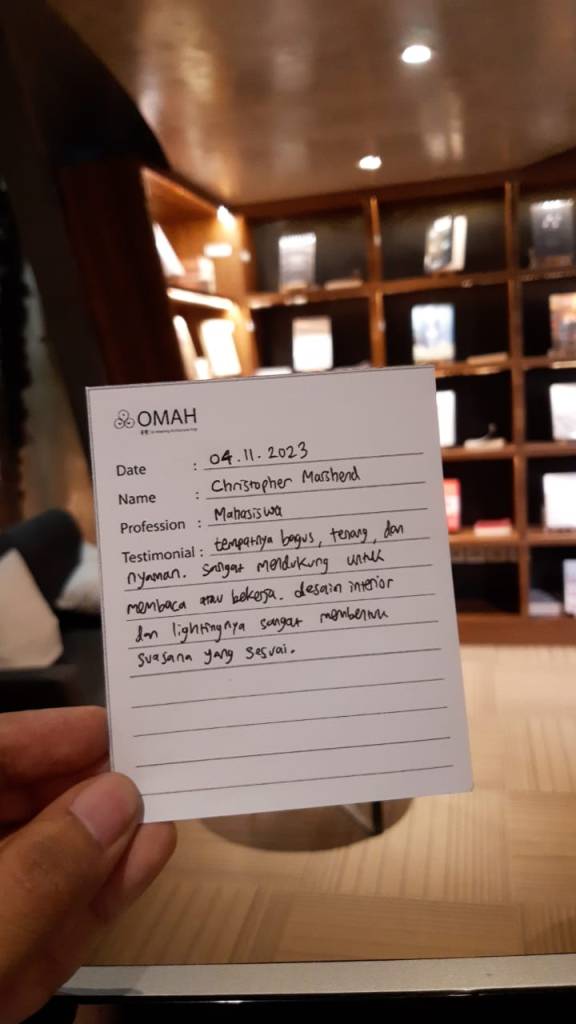 OMAH
Date : 04.11.2023
Name : Christopher Marshend
Profession : Mahasiswa
Testimonial : tempatnya bagus, tenang, dan
nyaman. sangat mendukung untuk
membaca atau bekerja. desain interior
dan lightingnya sangat membentuk
suasana yang sesuai.